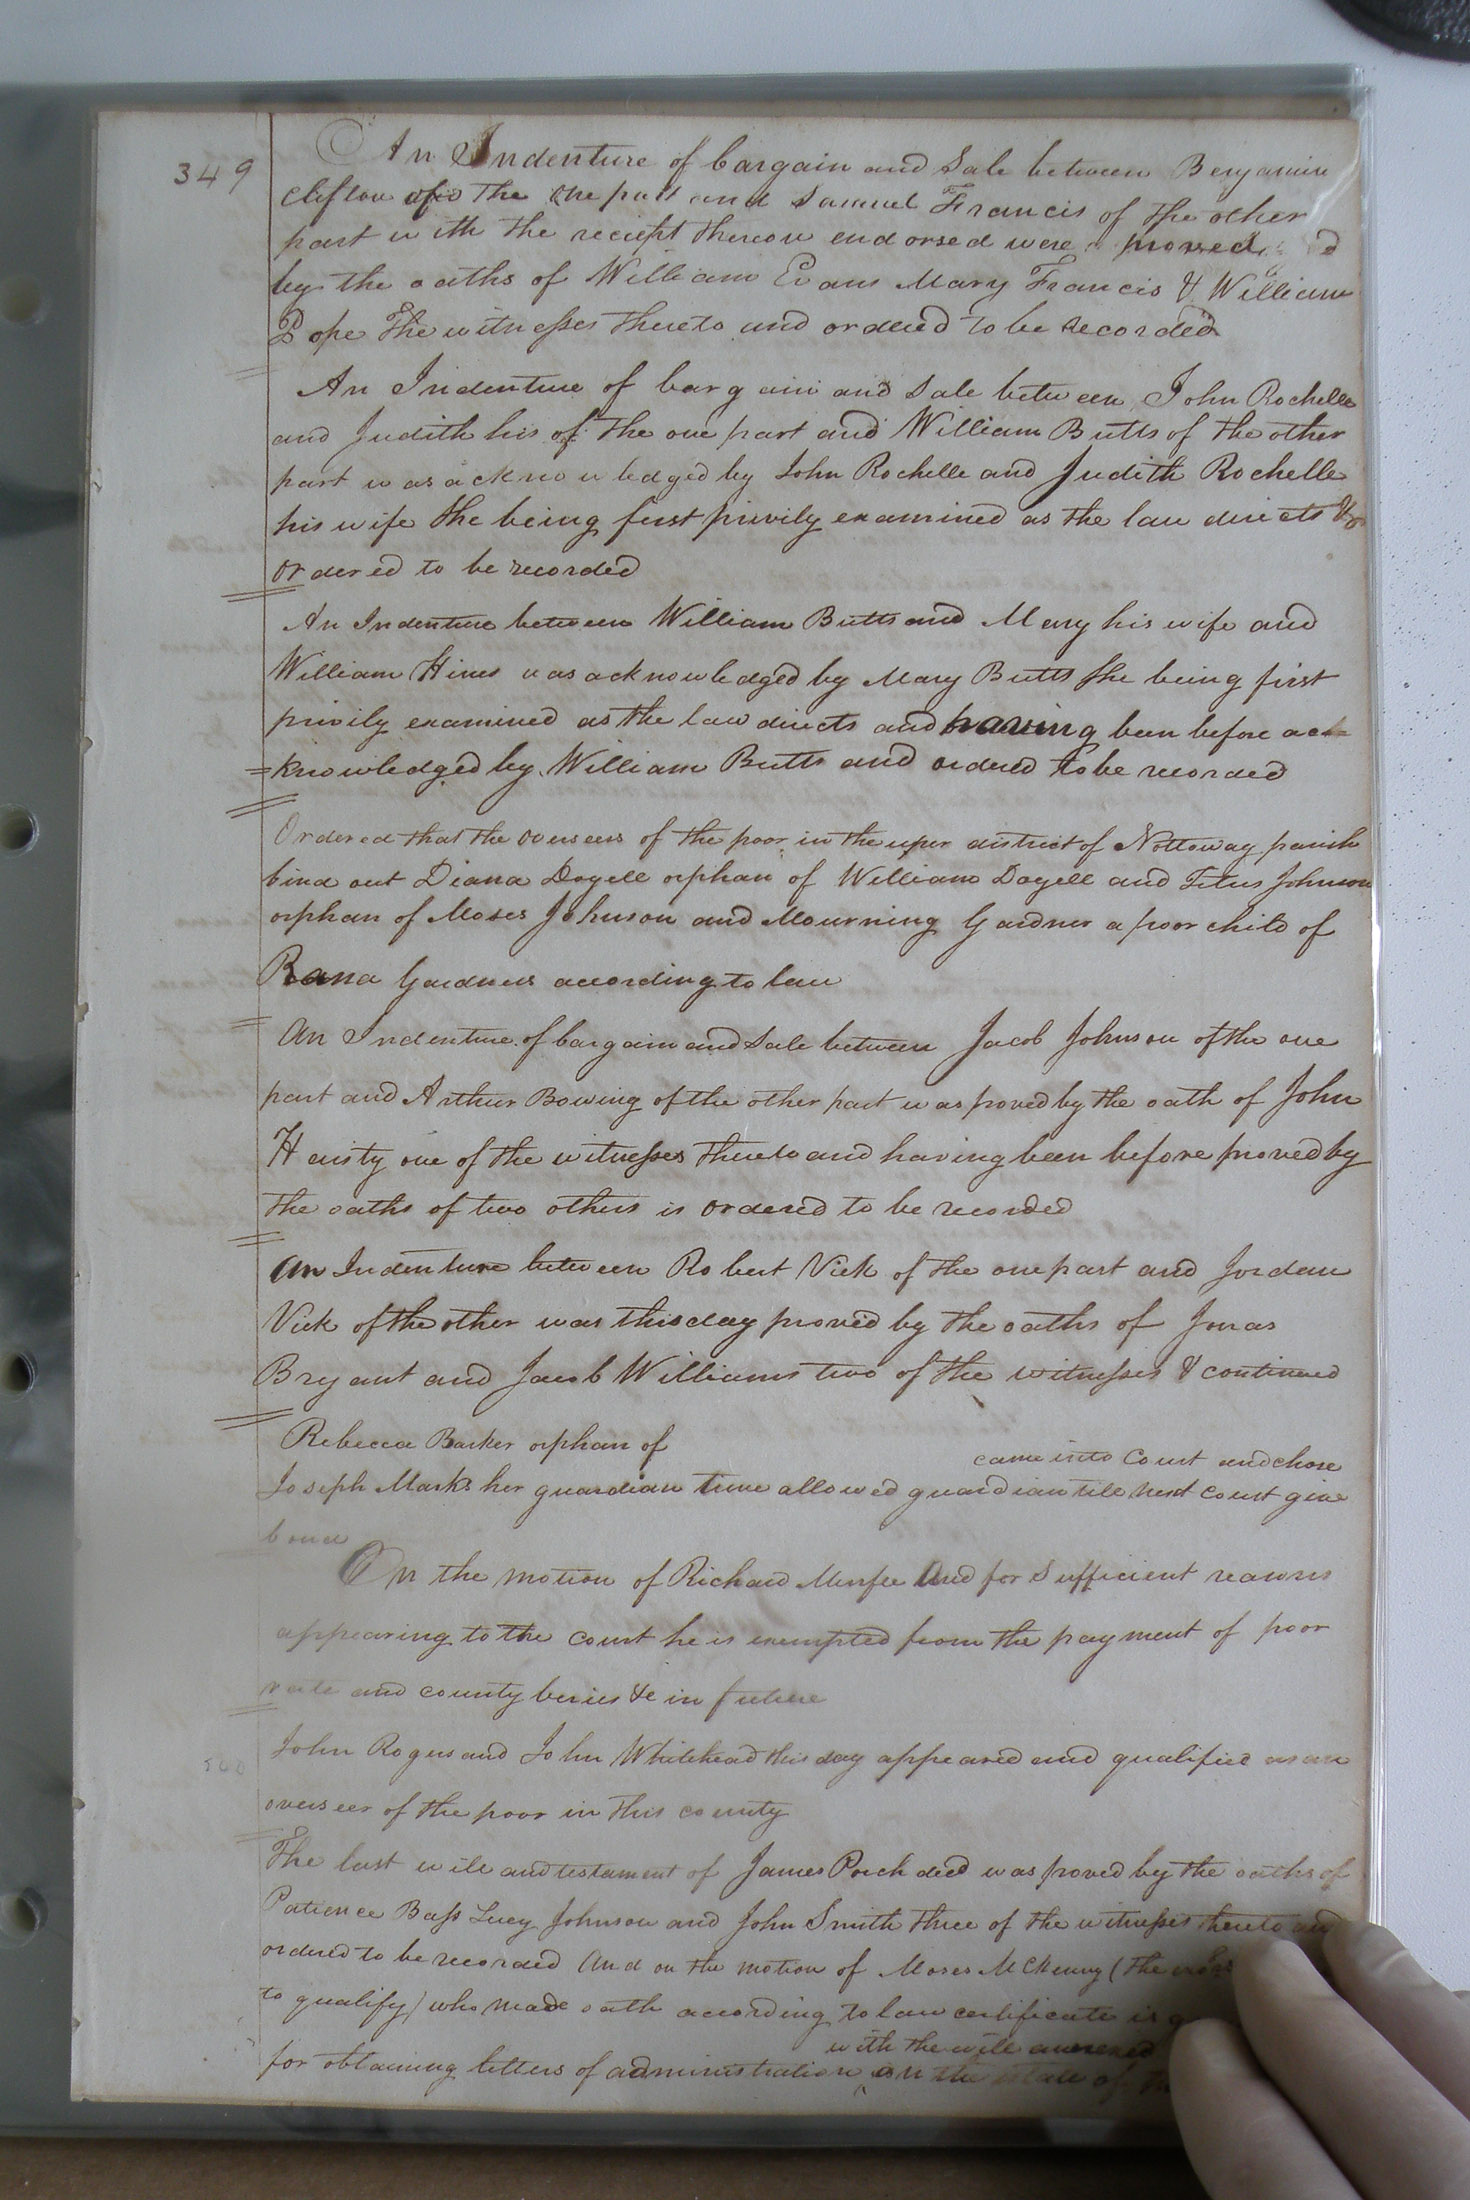 349
An Indenture of bargain and Sale between Benjamin
Clifton of the one part and Samuel Francis of the other
part with the reciept thereon endorsed were proved
by the oaths of William Evans Mary Francis & William
Pope the witnesses thereto and ordered to be recorded
An Indenture of bargain and Sale between John Rochelle
and Judith his of the one part and William Butts of the other
part was acknowledged by John Rochelle and Judith Rochelle
his wife the being first privily examined as the law directs &
ordered to be recorded
An Indenture between William Butts and Mary his wife and
William Hines was acknowledged by Mary Butts she being first
privily examined as the law directs and having been before ack=
=knowledged by William Butts and ordered to be recorded
Ordered that the overseers of the poor in the uper district of Nottoway parish
bind out Diana Dogell orphan of William Dogell and Titus Johnson
orphan of Moses Johnson and Mourning Gardner a poor child of
Rana Gardners according to law
An Indenture of bargain and Sale between Jacob Johnson of the one
part and Arthur Bowing of the other part was proved by the oath of John
Hausty one of the witnesses thereto and having been before proved by
the oaths of two others is ordered to be recorded
An Indenture between Robert Vick of the one part and Jordan
Vick of the other was this day proved by the oaths of Jonas
Bryant and Jacob Williams two of the witnesses & continued
Rebecca Barker orphan of came into Court and chose
Joseph Marks her guardian time allowed guardian till next court give
bond
On the motion of Richard And for Sufficient reasons
appearing to the court he is exempted from the payment of poor
rate and county levies &c in future
John Rogers and John Whitehead this day appeared and qualified as an
overseer of the poor in this county
The last will and testament of James Porch decd was proved by the oaths of
Patience Bass Lucy Johnson and John Smith three of the witnesses thereto and
ordered to be recorded And on the motion of Moses McKenny (the
to qualify) who made oath according to law certificate is
with the will annexed
for obtaining letters of administration on the estate of